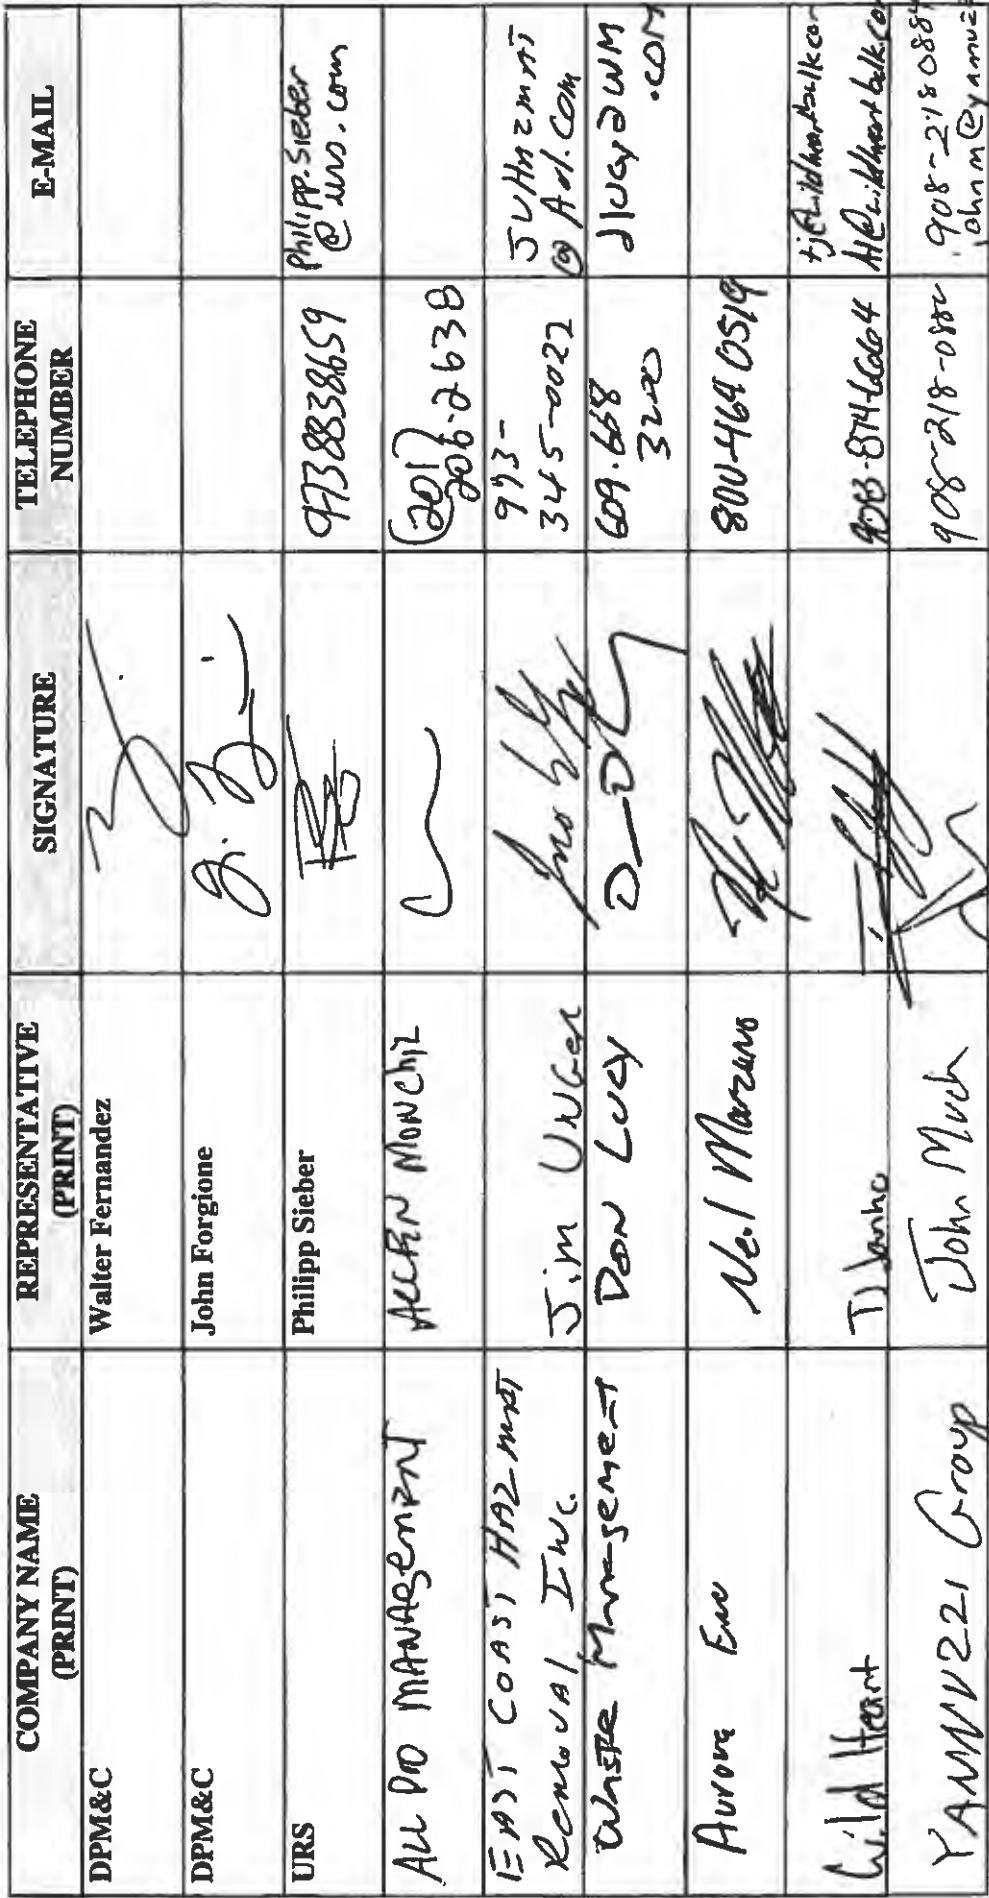 COMPANY NAME (PRINT)
REPRESENTATIVE (PRINT)
SIGNATURE
TELEPHONE NUMBER
E-MAIL
DPM&C
Walter Fernandez
DPM&C
John Forgione
URS
Philipp Sieber
9738838659
Philipp.Sieber
@urs.com
ALL PRO MANAgemENT
(201)
206-2638
EAST COAST HAZ MAT
Removal Inc.
Jim Unger
973-
345-0022
JUHAZMAT
@Aol.com
Waste Management
Don Lucy
609.668
3200
dlucy@WM
.COM
Aurora Env
Neil Marzano
800-469 0519
Wild Heart
YANNUZZI Group
John Much
908-218-0880
908-218 0884